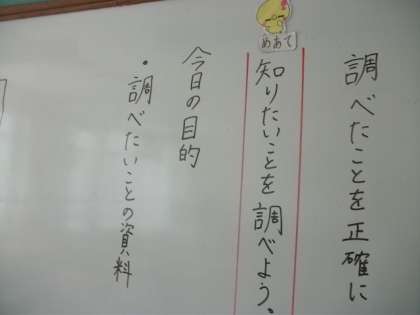 調べたことを正確に
めあて
知りたいことを調べよう。
今日の目的
・調べたいことの資料